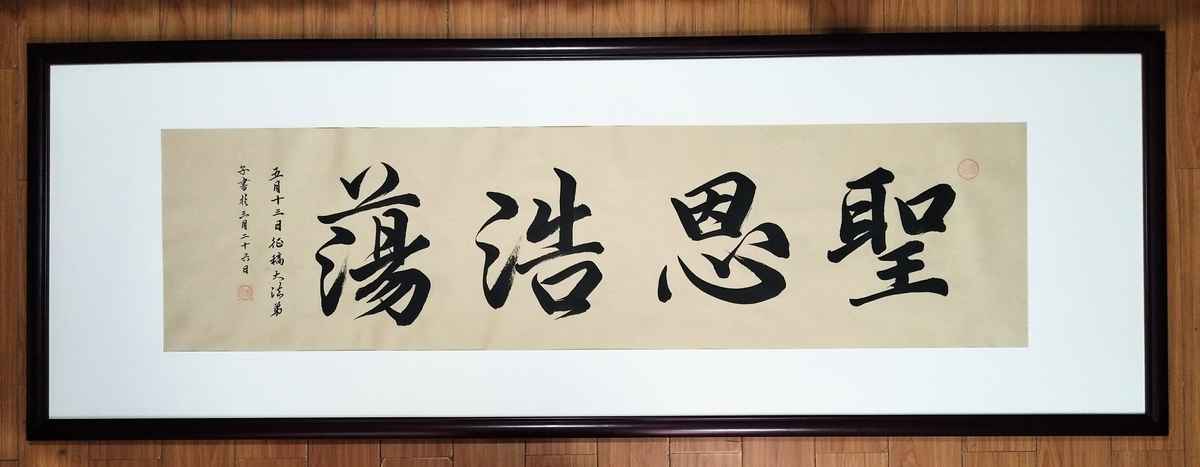 聖恩浩蕩
五月十三日征稿大法弟
子書於三月二十六日